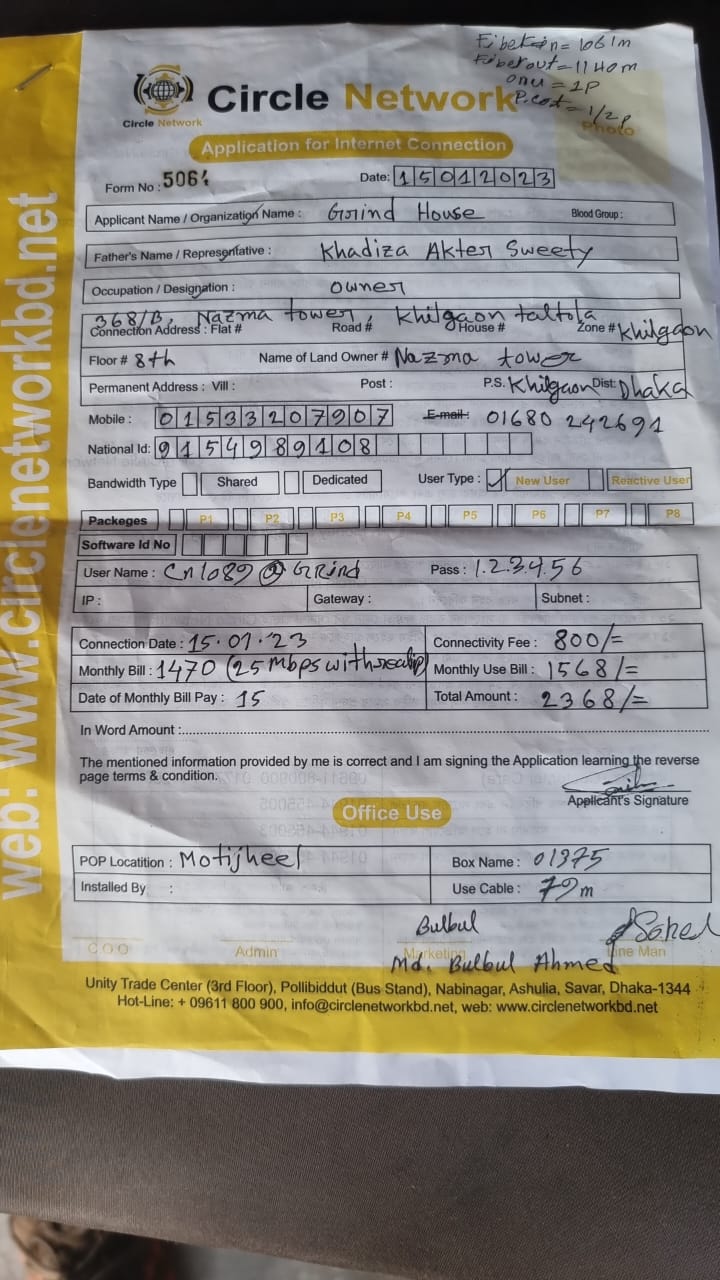 Fiber in = 1061m
Fiber out = 1140m
onu = 1P
P. cot = 1/2 P
Photo
Circle Network
Circle Network
Application for Internet Connection
Form No : 5064 Date: 15012023
Applicant Name / Organization Name : Grind House Blood Group :
Father's Name / Representative : Khadiza Akter Sweety
Occupation / Designation : owner
368/B, Nazma tower, Khilgaon taltola
Connection Address : Flat # Road # House # Zone # Khilgaon
Floor # 8th Name of Land Owner # Nazma tower
Permanent Address : Vill : Post : P.S. Khilgaon Dist: Dhaka
Mobile : 01533207907 E-mail: 01680 242691
National Id: 9154989108
Bandwidth Type Shared Dedicated User Type : ✓ New User Reactive User
Packeges P1 P2 P3 P4 P5 P6 P7 P8
Software Id No
User Name : Cn1089@Grind Pass : 1.2.3.4.56
IP : Gateway : Subnet :
Connection Date : 15.01.23 Connectivity Fee : 800/=
Monthly Bill : 1470 (25 Mbps with Monthly Use Bill : 1568/=
Date of Monthly Bill Pay : 15 Total Amount : 2368/=
In Word Amount :
The mentioned information provided by me is correct and I am signing the Application learning the reverse
page terms & condition.
Applicant's Signature
Office Use
POP Locatition : Motijheel Box Name : 01375
Installed By : Use Cable : 79m
Bulbul
C O O Admin Marketing Line Man
Md. Bulbul Ahmed
Unity Trade Center (3rd Floor), Pollibiddut (Bus Stand), Nabinagar, Ashulia, Savar, Dhaka-1344
Hot-Line: + 09611 800 900, info@circlenetworkbd.net, web: www.circlenetworkbd.net
web: www.circlenetworkbd.net